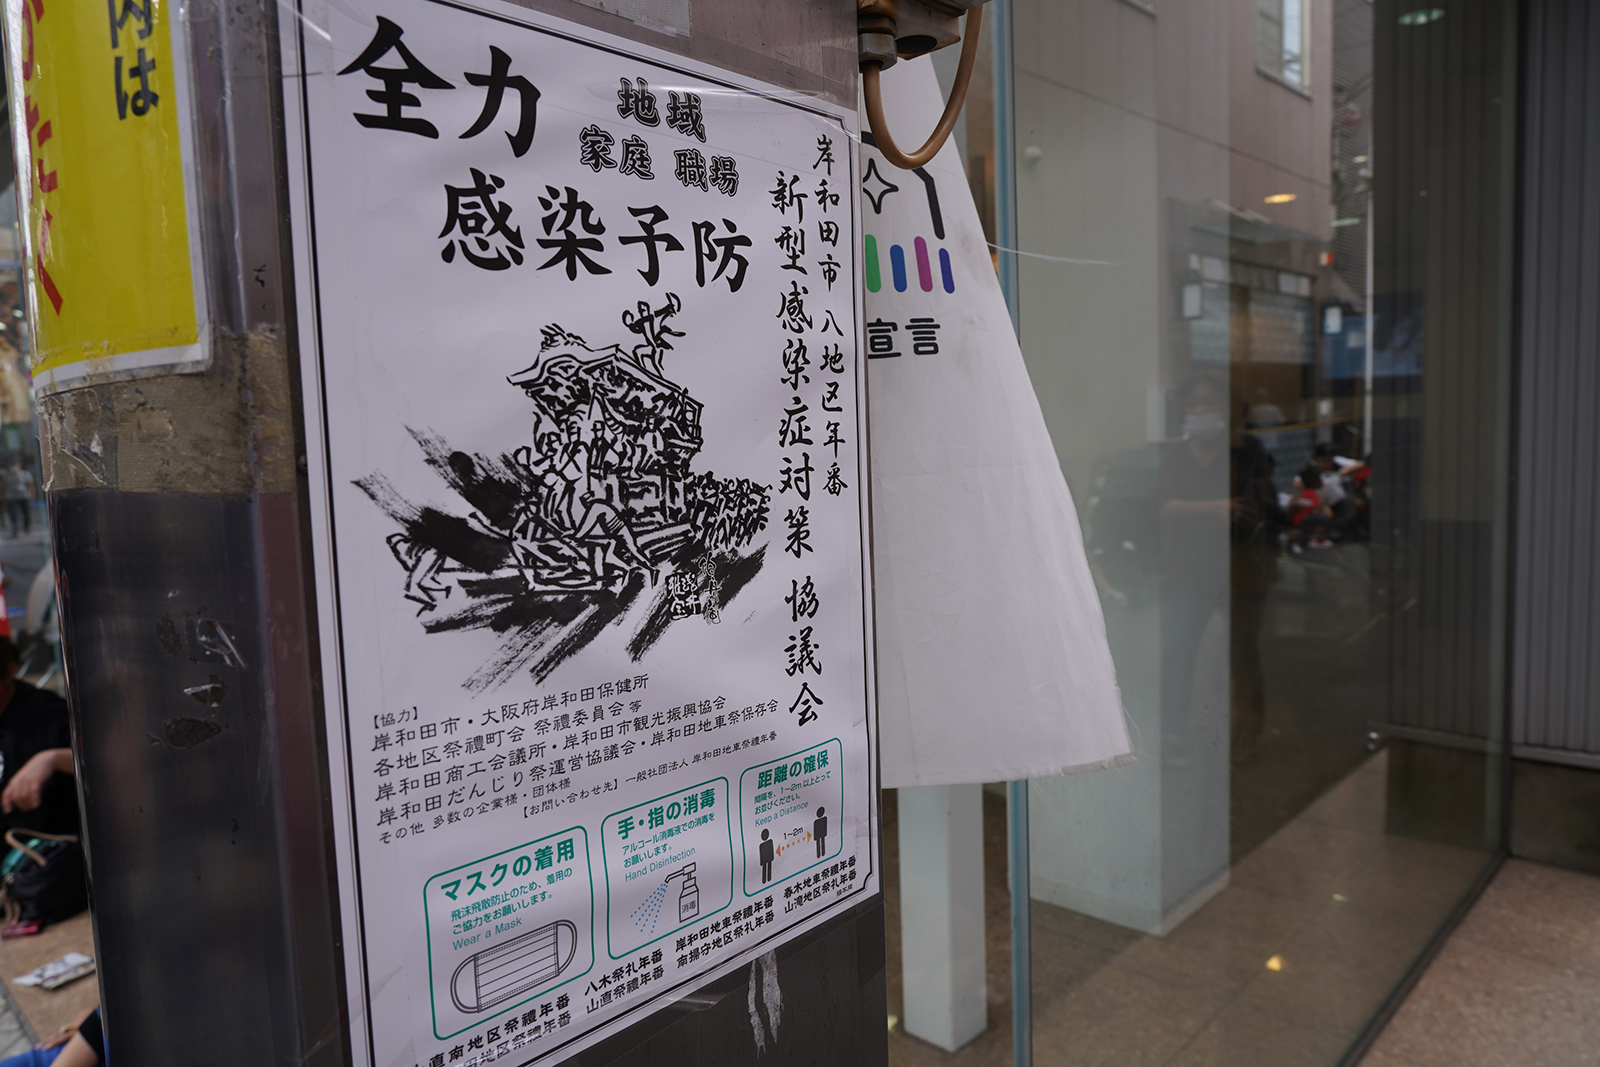 内は
全力
地域
家庭 職場
感染予防
岸和田市 八地区年番
新型感染症対策 協議会
宣言
【協力】
岸和田市・大阪府岸和田保健所
各地区祭禮町会 祭禮委員会 等
岸和田商工会議所・岸和田市観光振興協会
岸和田だんじり祭運営協議会・岸和田地車祭保存会
その他 多数の企業様・団体様
【お問い合わせ先】一般社団法人 岸和田地車祭禮年番
マスクの着用
飛沫飛散防止のため、着用の
ご協力をお願いします。
Wear a Mask
手・指の消毒
アルコール消毒液での消毒を
お願いします。
Hand Disinfection
消毒
距離の確保
間隔を、1〜2m以上とって
お並びください。
Keep a Distance
1〜2m
直南地区祭禮年番
八木祭礼年番
岸和田地車祭禮年番
春木地車祭禮年番
田地区祭禮年番
山直祭禮年番
南掃守地区祭礼年番
山滝地区祭礼年番